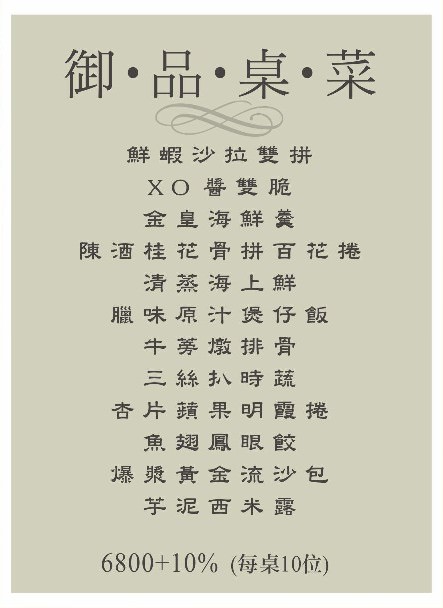 御·品·桌·菜
鮮蝦沙拉雙拼
XO醬雙脆
金皇海鮮羹
陳酒桂花骨拼百花捲
清蒸海上鮮
臘味原汁煲仔飯
牛蒡燉排骨
三絲扒時蔬
杏片蘋果明霞捲
魚翅鳳眼餃
爆漿黃金流沙包
芋泥西米露
6800+10% (每桌10位)